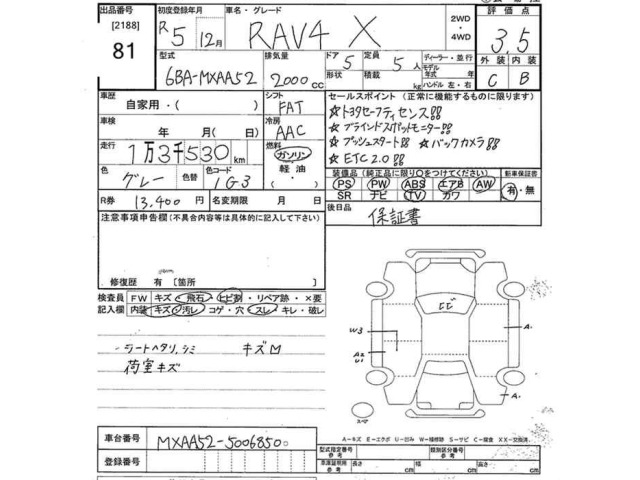 出品番号 初度登録年月 車名・グレード 2WD ・ 4WD 評価点
[2188]
81
R5 12月 RAV4 X 3.5
型式 排気量 ドア 定員 ディーラー・並行 外装 内装
6BA-MXAA52 2000cc 5 5人 モデル年式 年式 C B
形状 積載 kg ハンドル 左・右
車歴 シフト セールスポイント (正常に機能するものに限ります)
自家用・( ) FAT ☆トヨタセーフティセンス!!
車検 冷房 ☆ブラインドスポットモニター!!
年 月( 日) AAC ☆プッシュスタート!! ☆バックカメラ!!
走行 燃料 ☆ETC2.0!!
1万3千530km ガソリン
軽油
・
色 色替 色コード 装備品 (純正品に限り○をつけてください) 新車保証書
グレー 1G3 PS PW ABS エアB AW 有・無
SR ナビ TV カワ
R券 13,400円 名変期限 月 日 後日品 保証書
注意事項申告欄(不具合内容等は具体的に記入して下さい)
修復歴 有 [箇所 ]
検査員記入欄 FW キズ・飛石・ヒビ割・リペア跡・×要
内装 キズ・汚レ・コゲ・穴・スレ・キレ・破レ
シートヘタリ、シミ キズM
荷室キズ
ヒビ
W3
A2
U1
A.
A.
スペア
A-キズ E-エクボ U-凹み W-補修跡 S-サビ C-腐食 XX-交換済
車台番号 MXAA52-5006850
登録番号
型式指定番号 参考 類別区分番号 参考
車庫証明用 参考 長さ cm 幅 cm 高さ cm